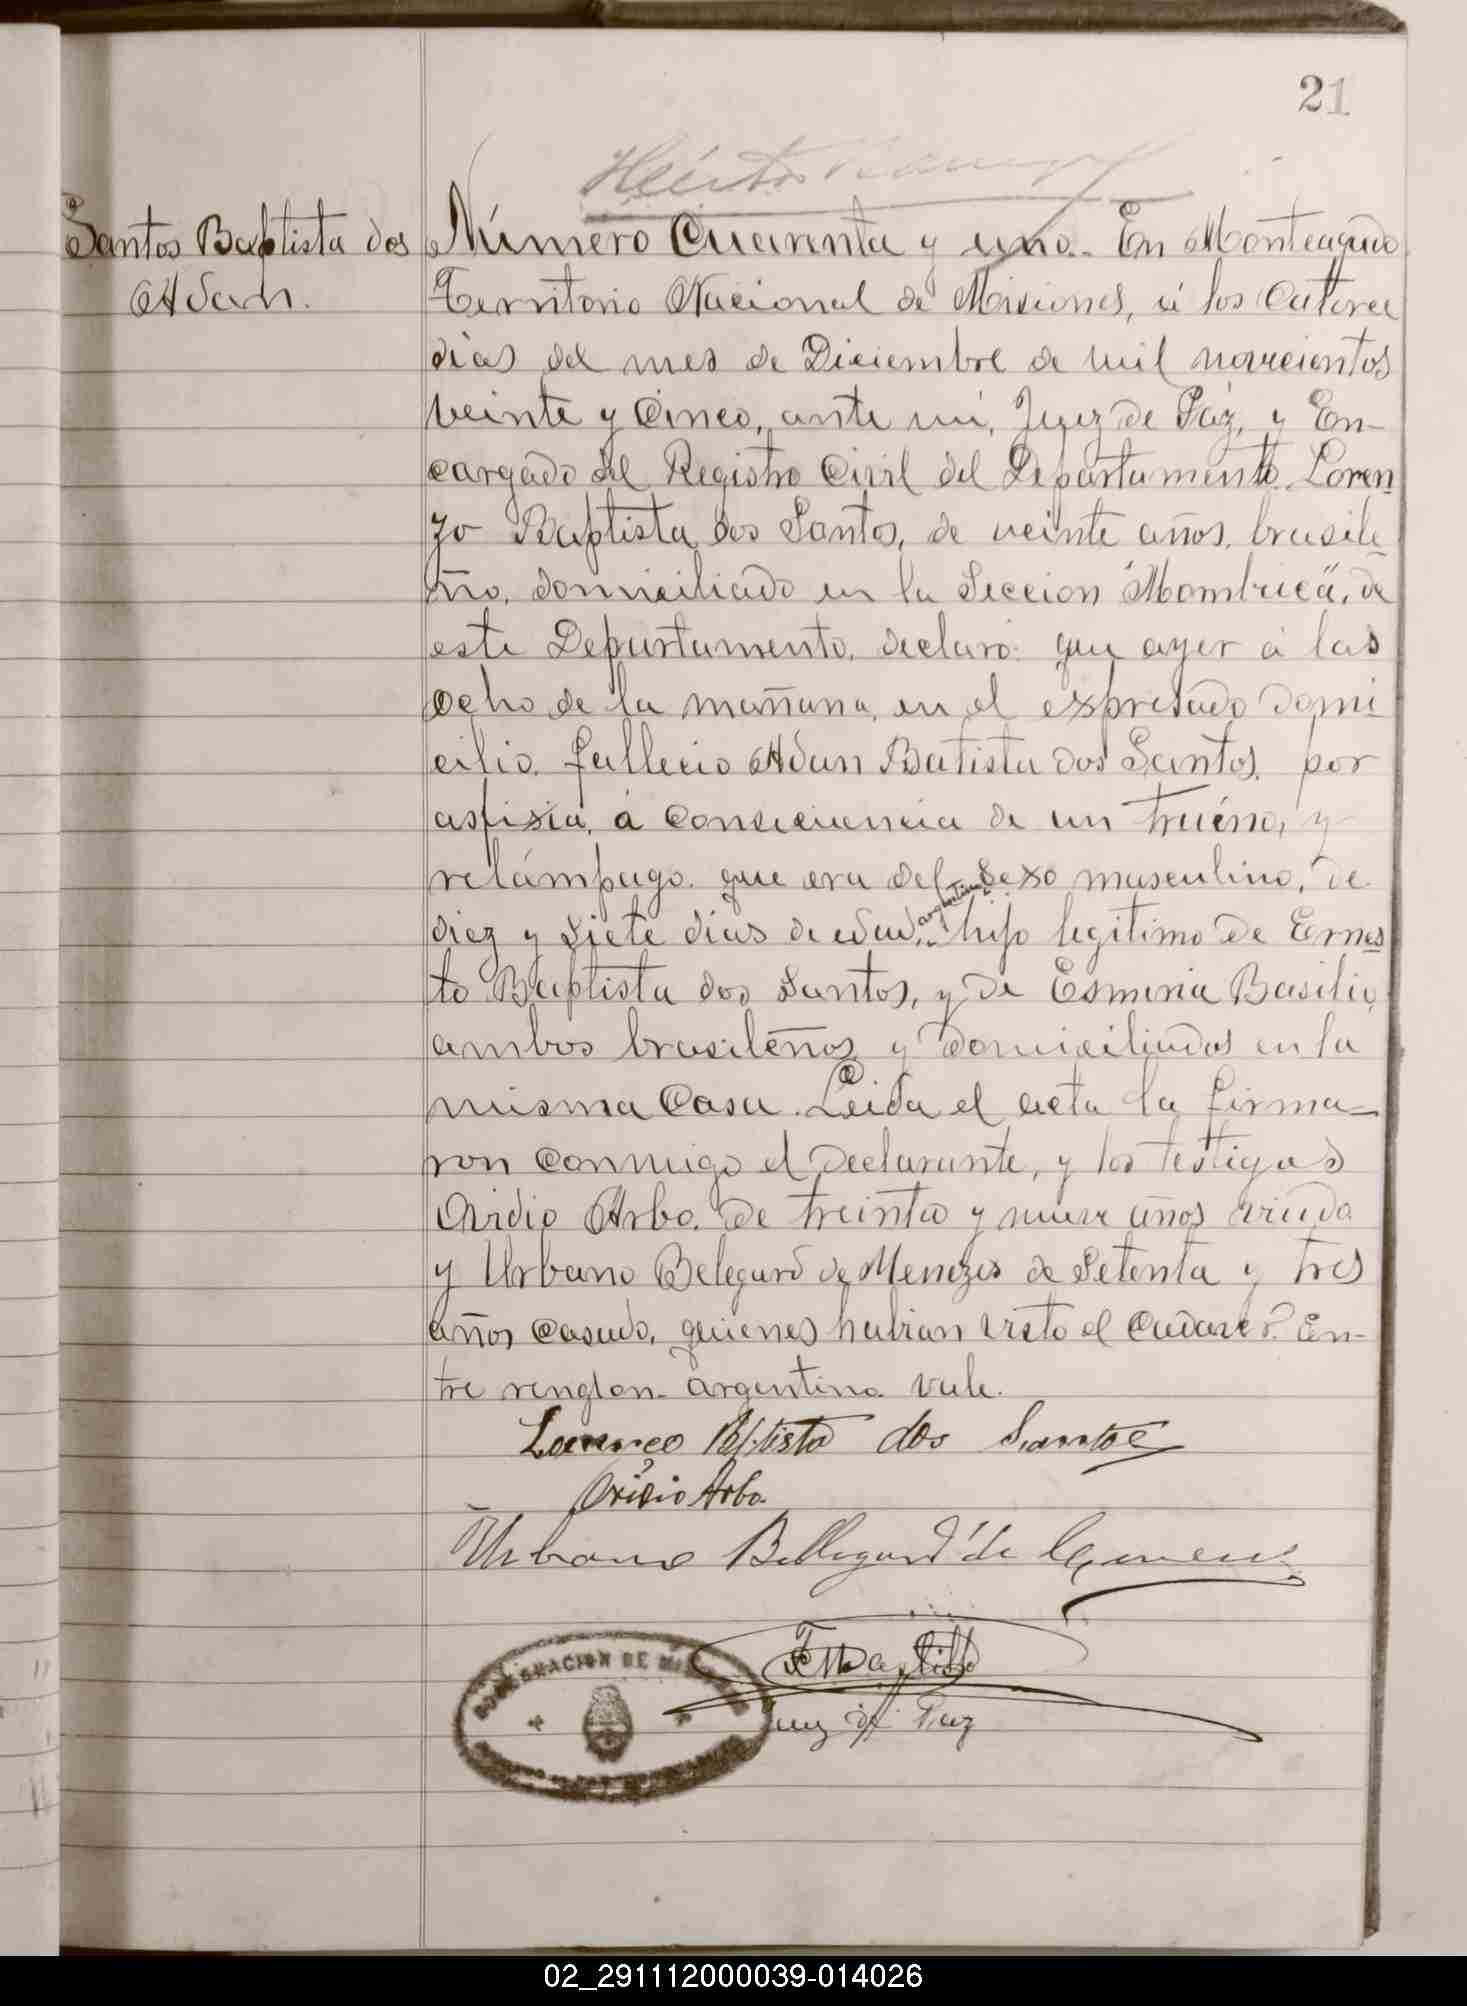 21
Héctor
Santos Baptista dos
Adan.
Número Cuarenta y uno.. En Monteagudo
Territorio Nacional de Misiones, á los Catorce
dias del mes de Diciembre de mil novecientos
veinte y Cinco, ante mí, Juez de Páz, y En-
cargado del Registro Civil del Departamento. Loren
zo Baptista dos Santos, de veinte años, brasile
ño, domiciliado en la Seccion "Mombricá", de
este Departamento, declaró: que ayer á las
Ocho de la mañana, en el expresado domi
cilio. fallecio Adan Batista dos Santos, por
asfixia, á Consecuencia de un truéno, y
relámpago. que era del sexo masculino, de
diez y siete dias de edad, argentino hijo legitimo de Ernes
to Baptista dos Santos, y de Esmeria Basilio,
ambos brasileños y domiciliados en la
misma Casa. Leida el acta la firma-
ron Conmigo el Declarante, y los testigos
Ovidio Arbo. de treinta y nueve años viudo
y Urbano Belegard de Menezes de Setenta y tres
años Casado, quienes habian visto el Cadaver. En-
tre renglon. argentino. vale.
Lourenço Bptista dos Santos
Ovidio Arbo.
Urbano Bellegard de
Juez de Paz
GOBERNACION DE MISIONES
02_291112000039-014026